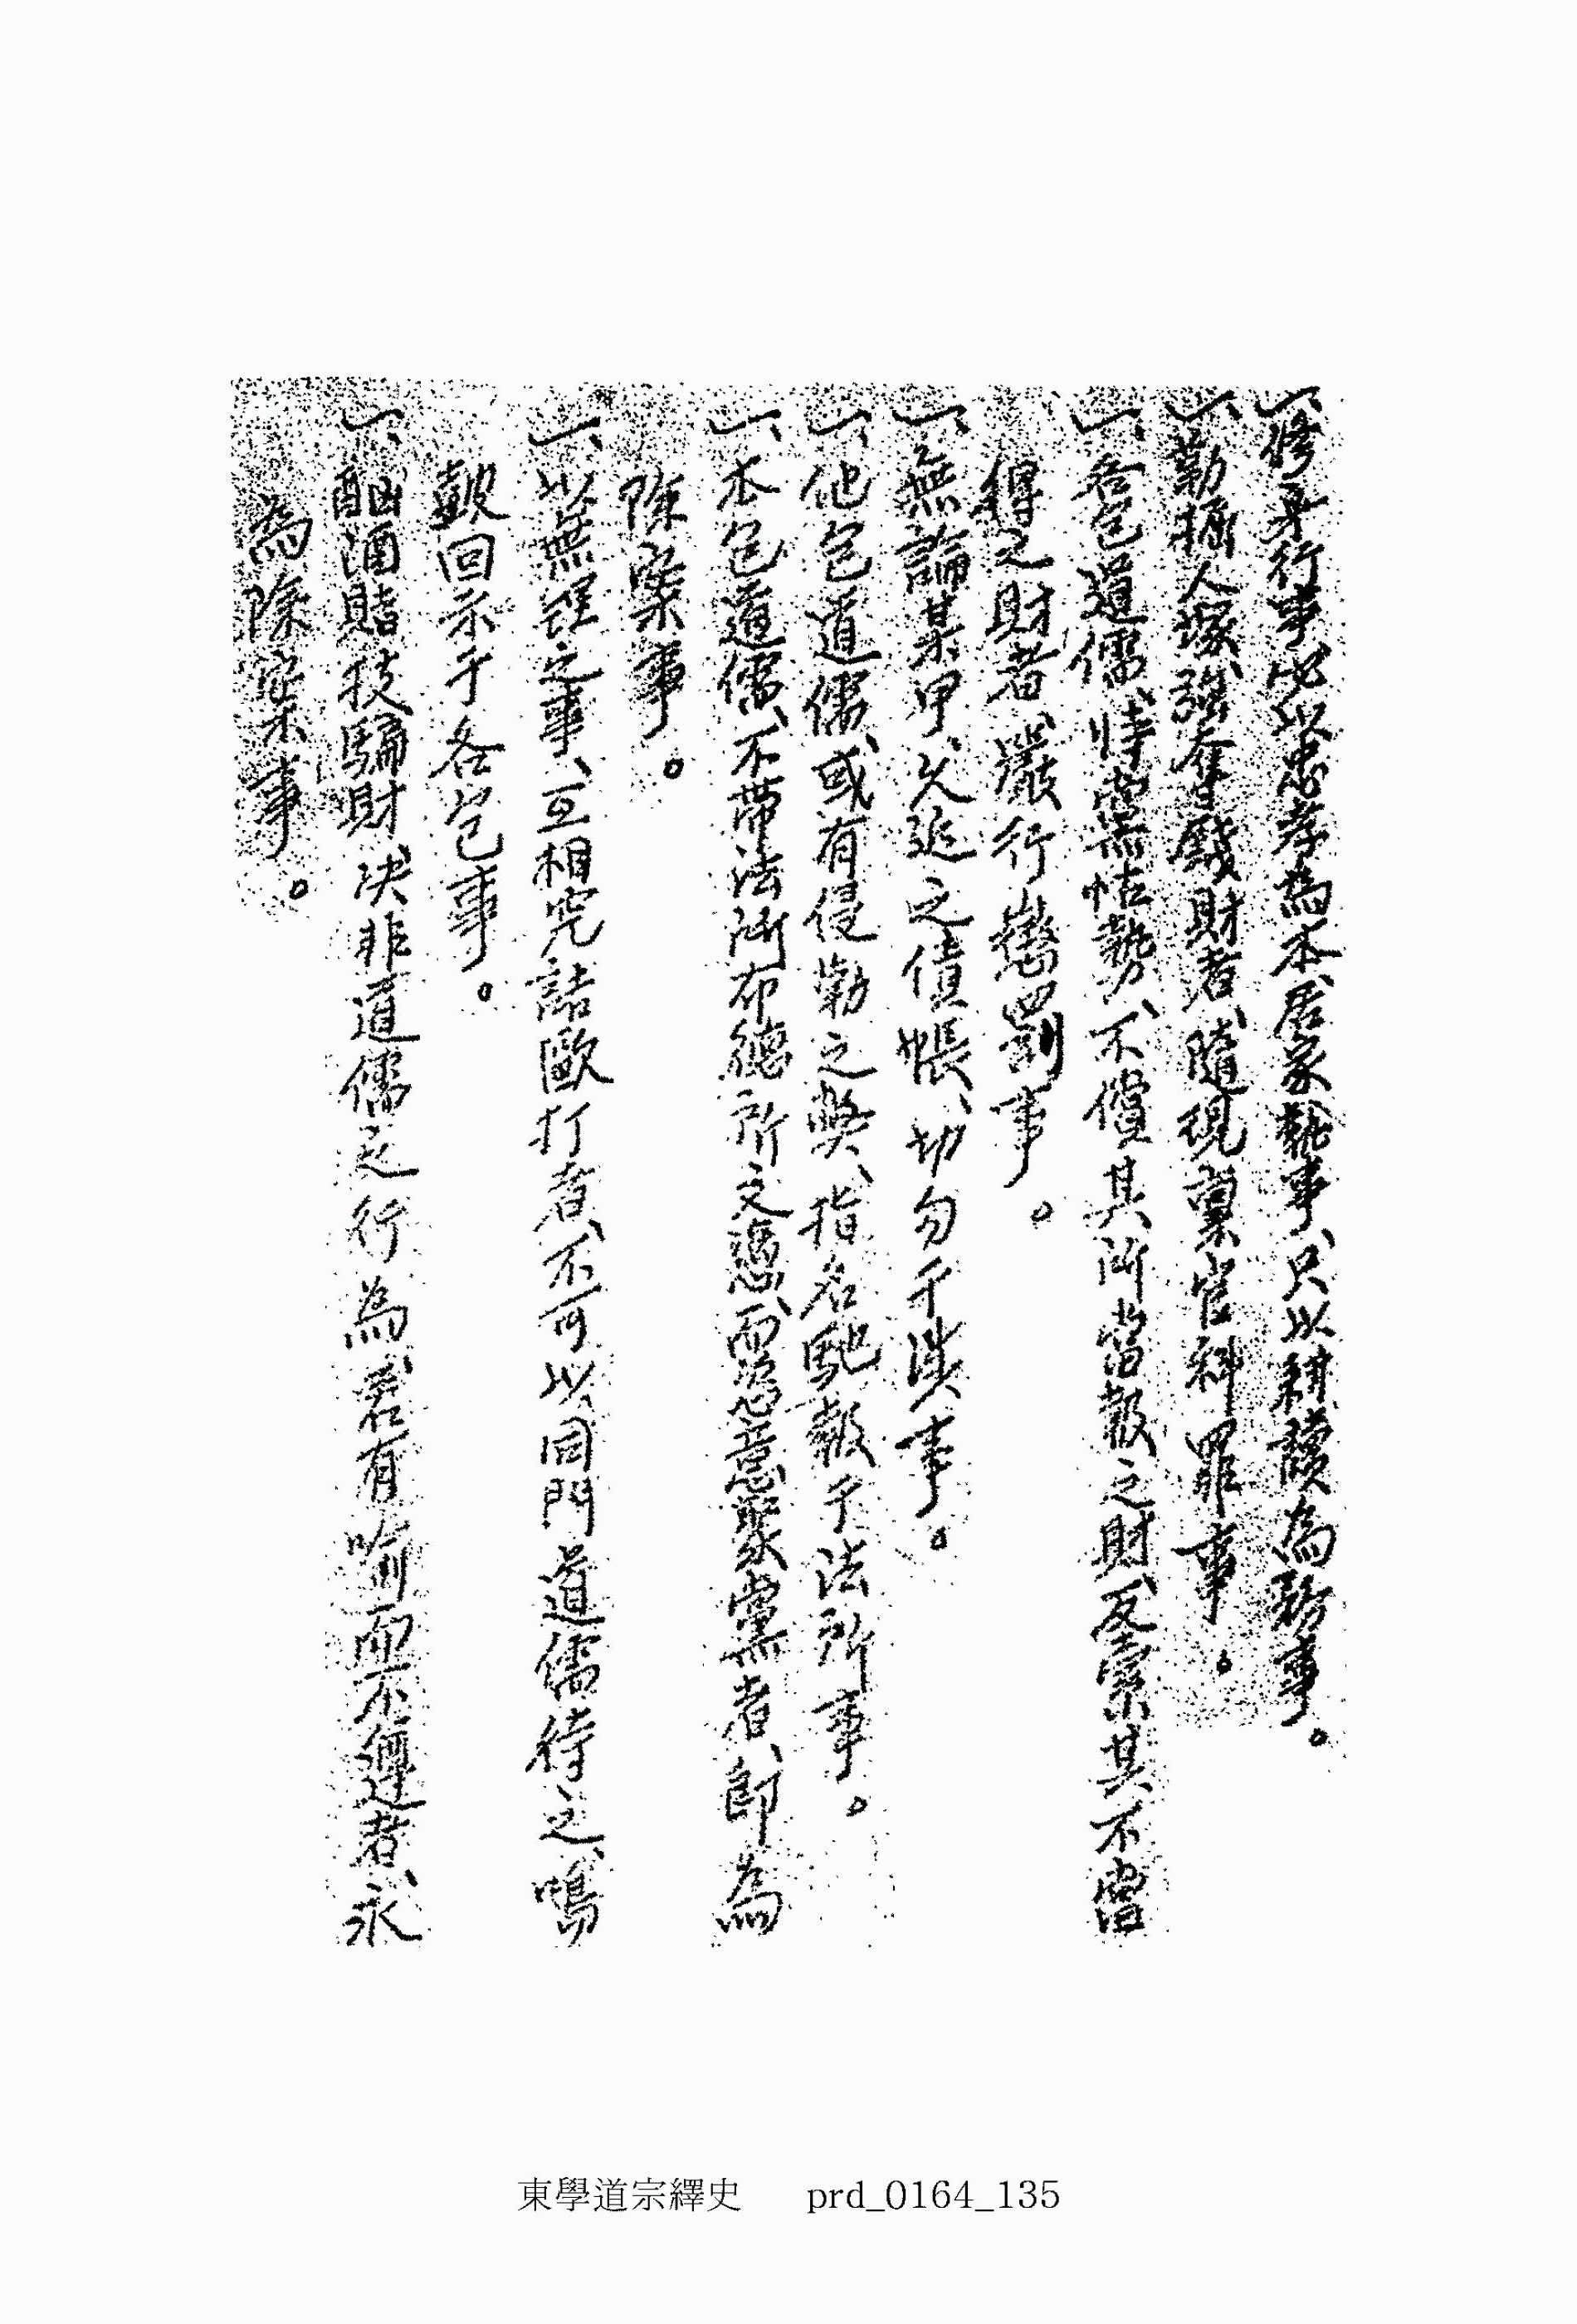 一、修身行事、必以忠孝爲本、居家執事、只以耕讀爲務事。
一、勒掘人塚、強奪錢財者、隨現稟官科罪事。
一、各包道儒、恃黨怙勢、不償其所當報之財、反索其不當
得之財者、嚴行懲罰事。
一、無論某甲、久延之債帳、切勿干涉事。
一、他包道儒、或有侵勒之弊、指名馳報于法所事。
一、本包道儒、不帶法所布德所文憑、而恣意聚黨者、即爲
除案事。
一、以無理之事、互相究詰毆打者、不可以同門道儒待之、鳴
鼓回示于各包事。
一、酗酒賭技騙財、决非道儒之行爲、若有喻而不遵者、永
爲除案事。
東學道宗繹史 prd_0164_135